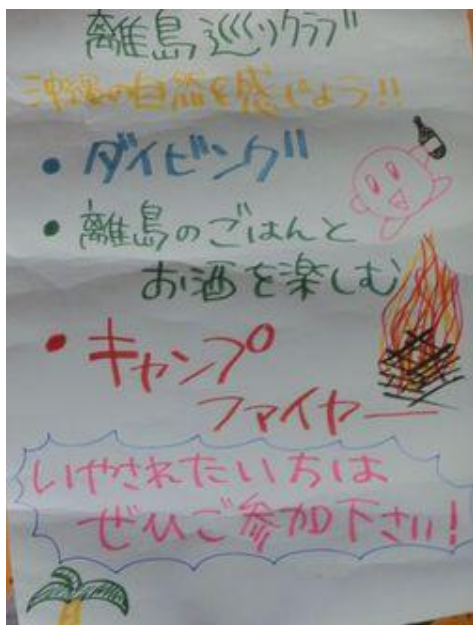 離島巡りクラブ
沖縄の自然を感じよう!!
・ダイビング
・離島のごはんと
お酒を楽しむ
・キャンプ
ファイヤー
いやされたい方は
ぜひご参加下さい!